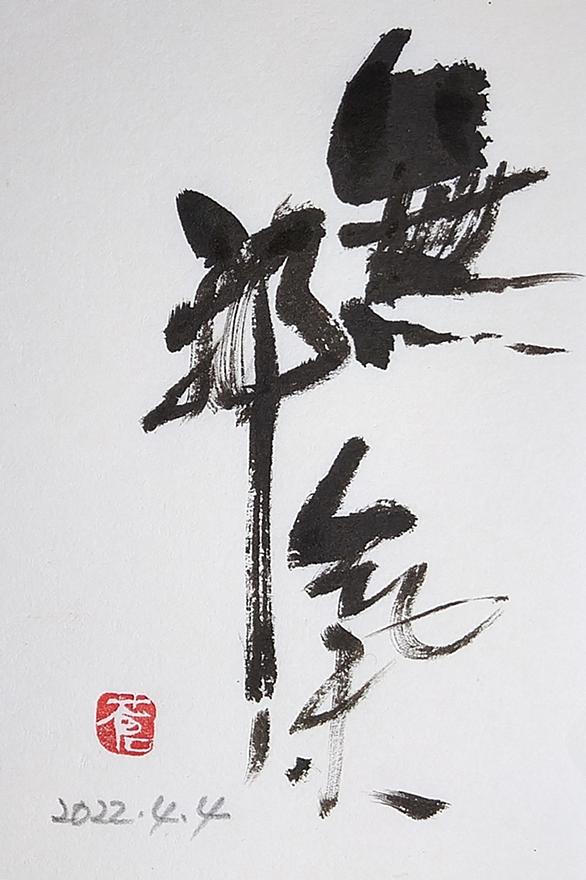 無邪氣
苍
2022.4.4